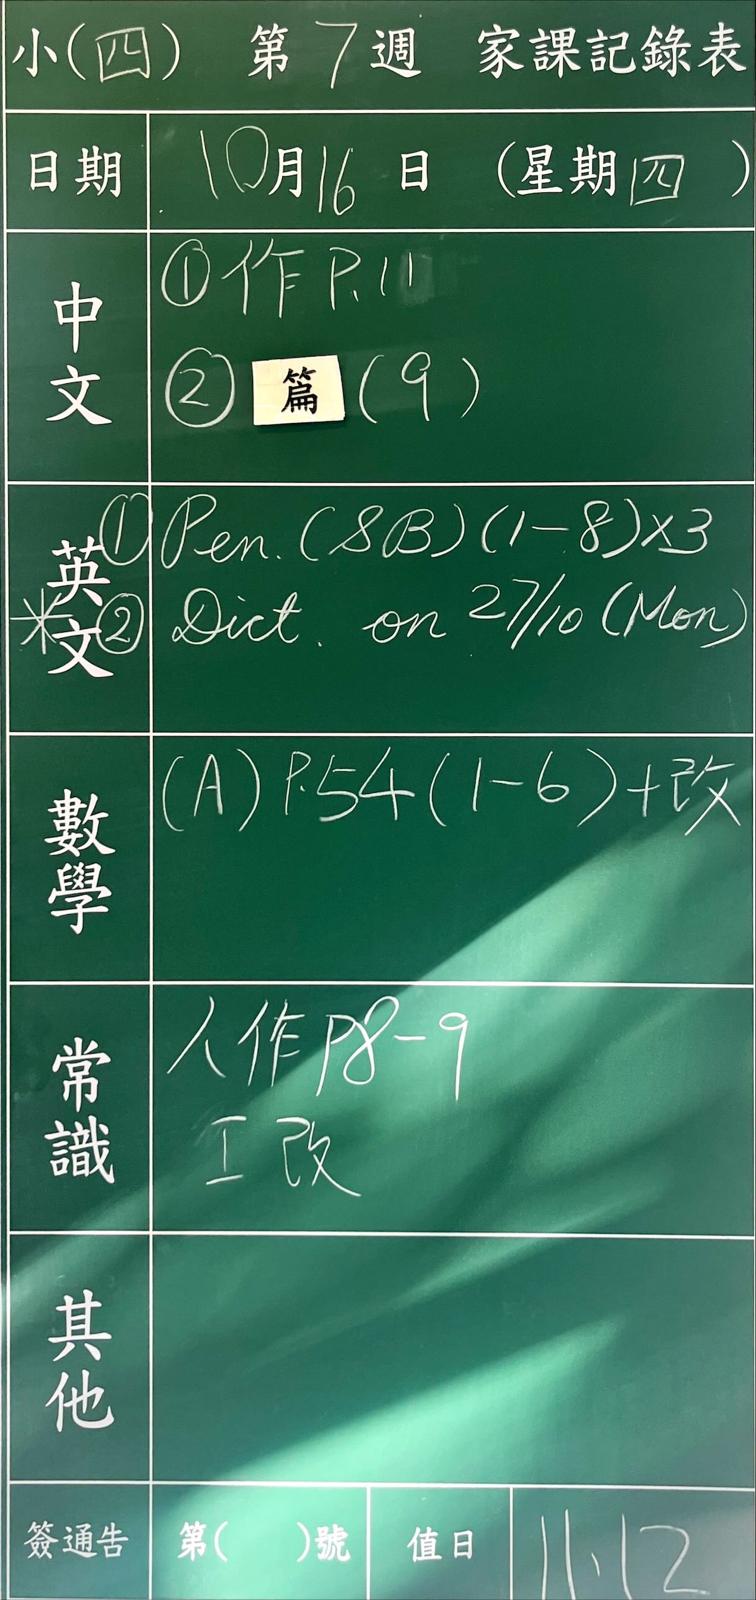 小(四) 第7週 家課記錄表
日期 10月16日 (星期四)
中文
①作P.11
②篇(9)
英文
① Pen. (SB) (1-8)×3
*② Dict. on 27/10 (Mon)
數學
(A) P.54 (1-6)+改
常識
人作P8-9
工改
其他
簽通告 第( )號 值日 11.12